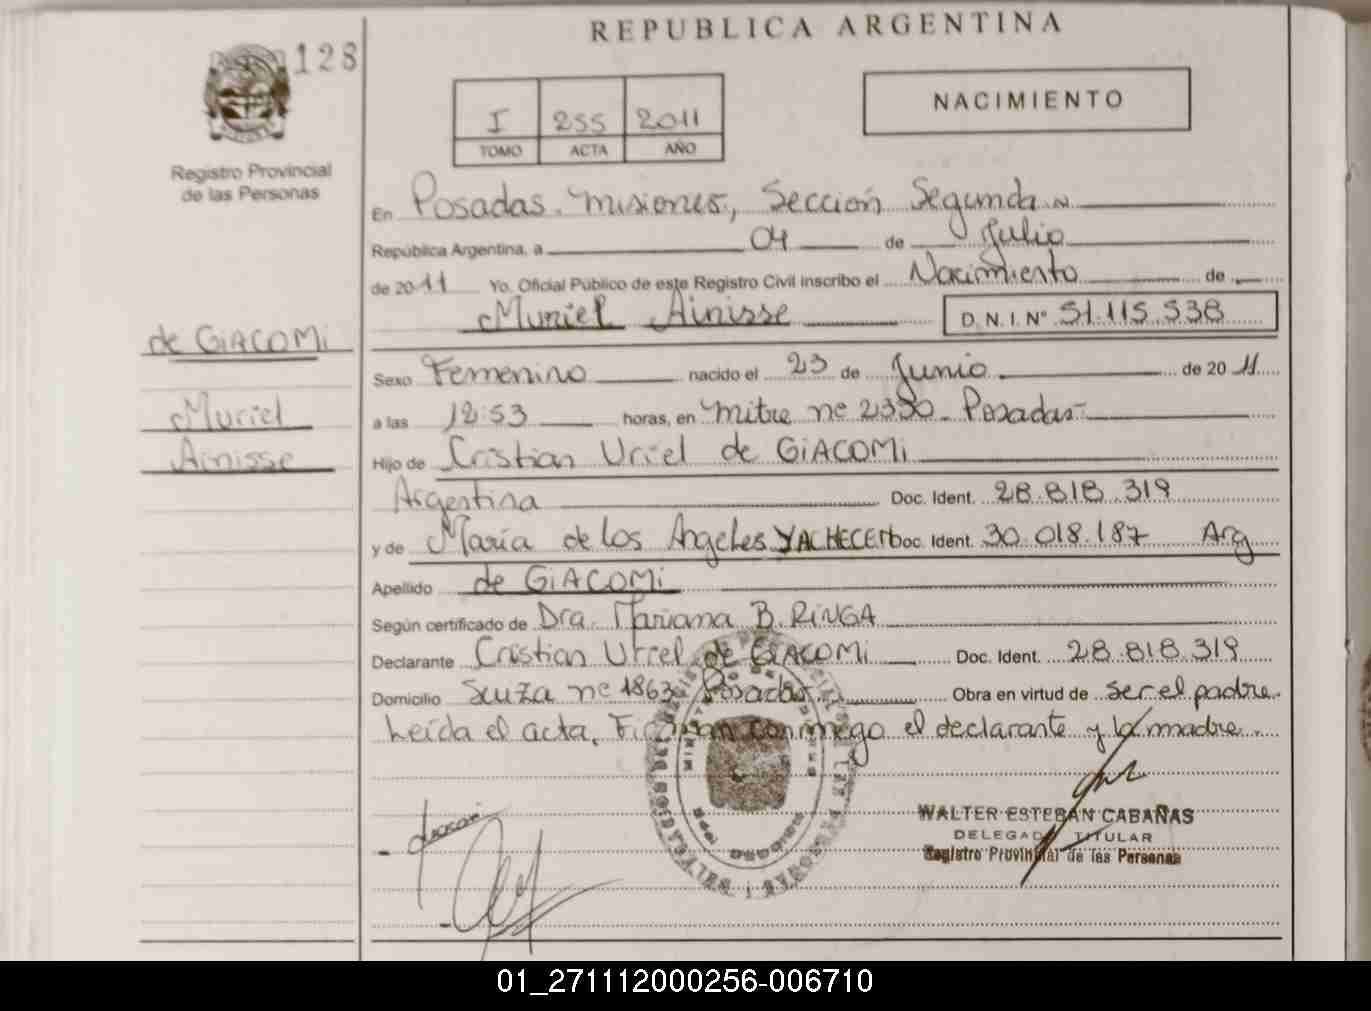 REPUBLICA ARGENTINA
128
I 255 2011
TOMO ACTA AÑO
NACIMIENTO
Registro Provincial
de las Personas
En Posadas. Misiones, Sección Segunda
República Argentina, a 04 de Julio
de 2011 Yo. Oficial Público de este Registro Civil inscribo el Nacimiento de
Muriel Ainisse D.N.I. Nº 51.115.538
de GIACOMi
Muriel
Ainisse
Sexo Femenino nacido el 23 de Junio de 2011
a las 12:53 horas, en mitre nº 2350 Posadas
Hijo de Cristian Uriel de GIACOMi
Argentina Doc. Ident. 28.818.319
y de María de los Angeles YACHECEN Doc. Ident. 30.018.187 Arg
Apellido de GIACOMi
Según certificado de Dra. Mariana B. RINGA
Declarante Cristian Uriel de GIACOMi Doc. Ident. 28.818.319
Domicilio nº 1863 Posadas Obra en virtud de ser el padre.
Leída el acta, Firman conmigo el declarante y la madre.
WALTER ESTEBAN CABAÑAS
DELEGADO TITULAR
Registro Provincial de las Personas
01_271112000256-006710